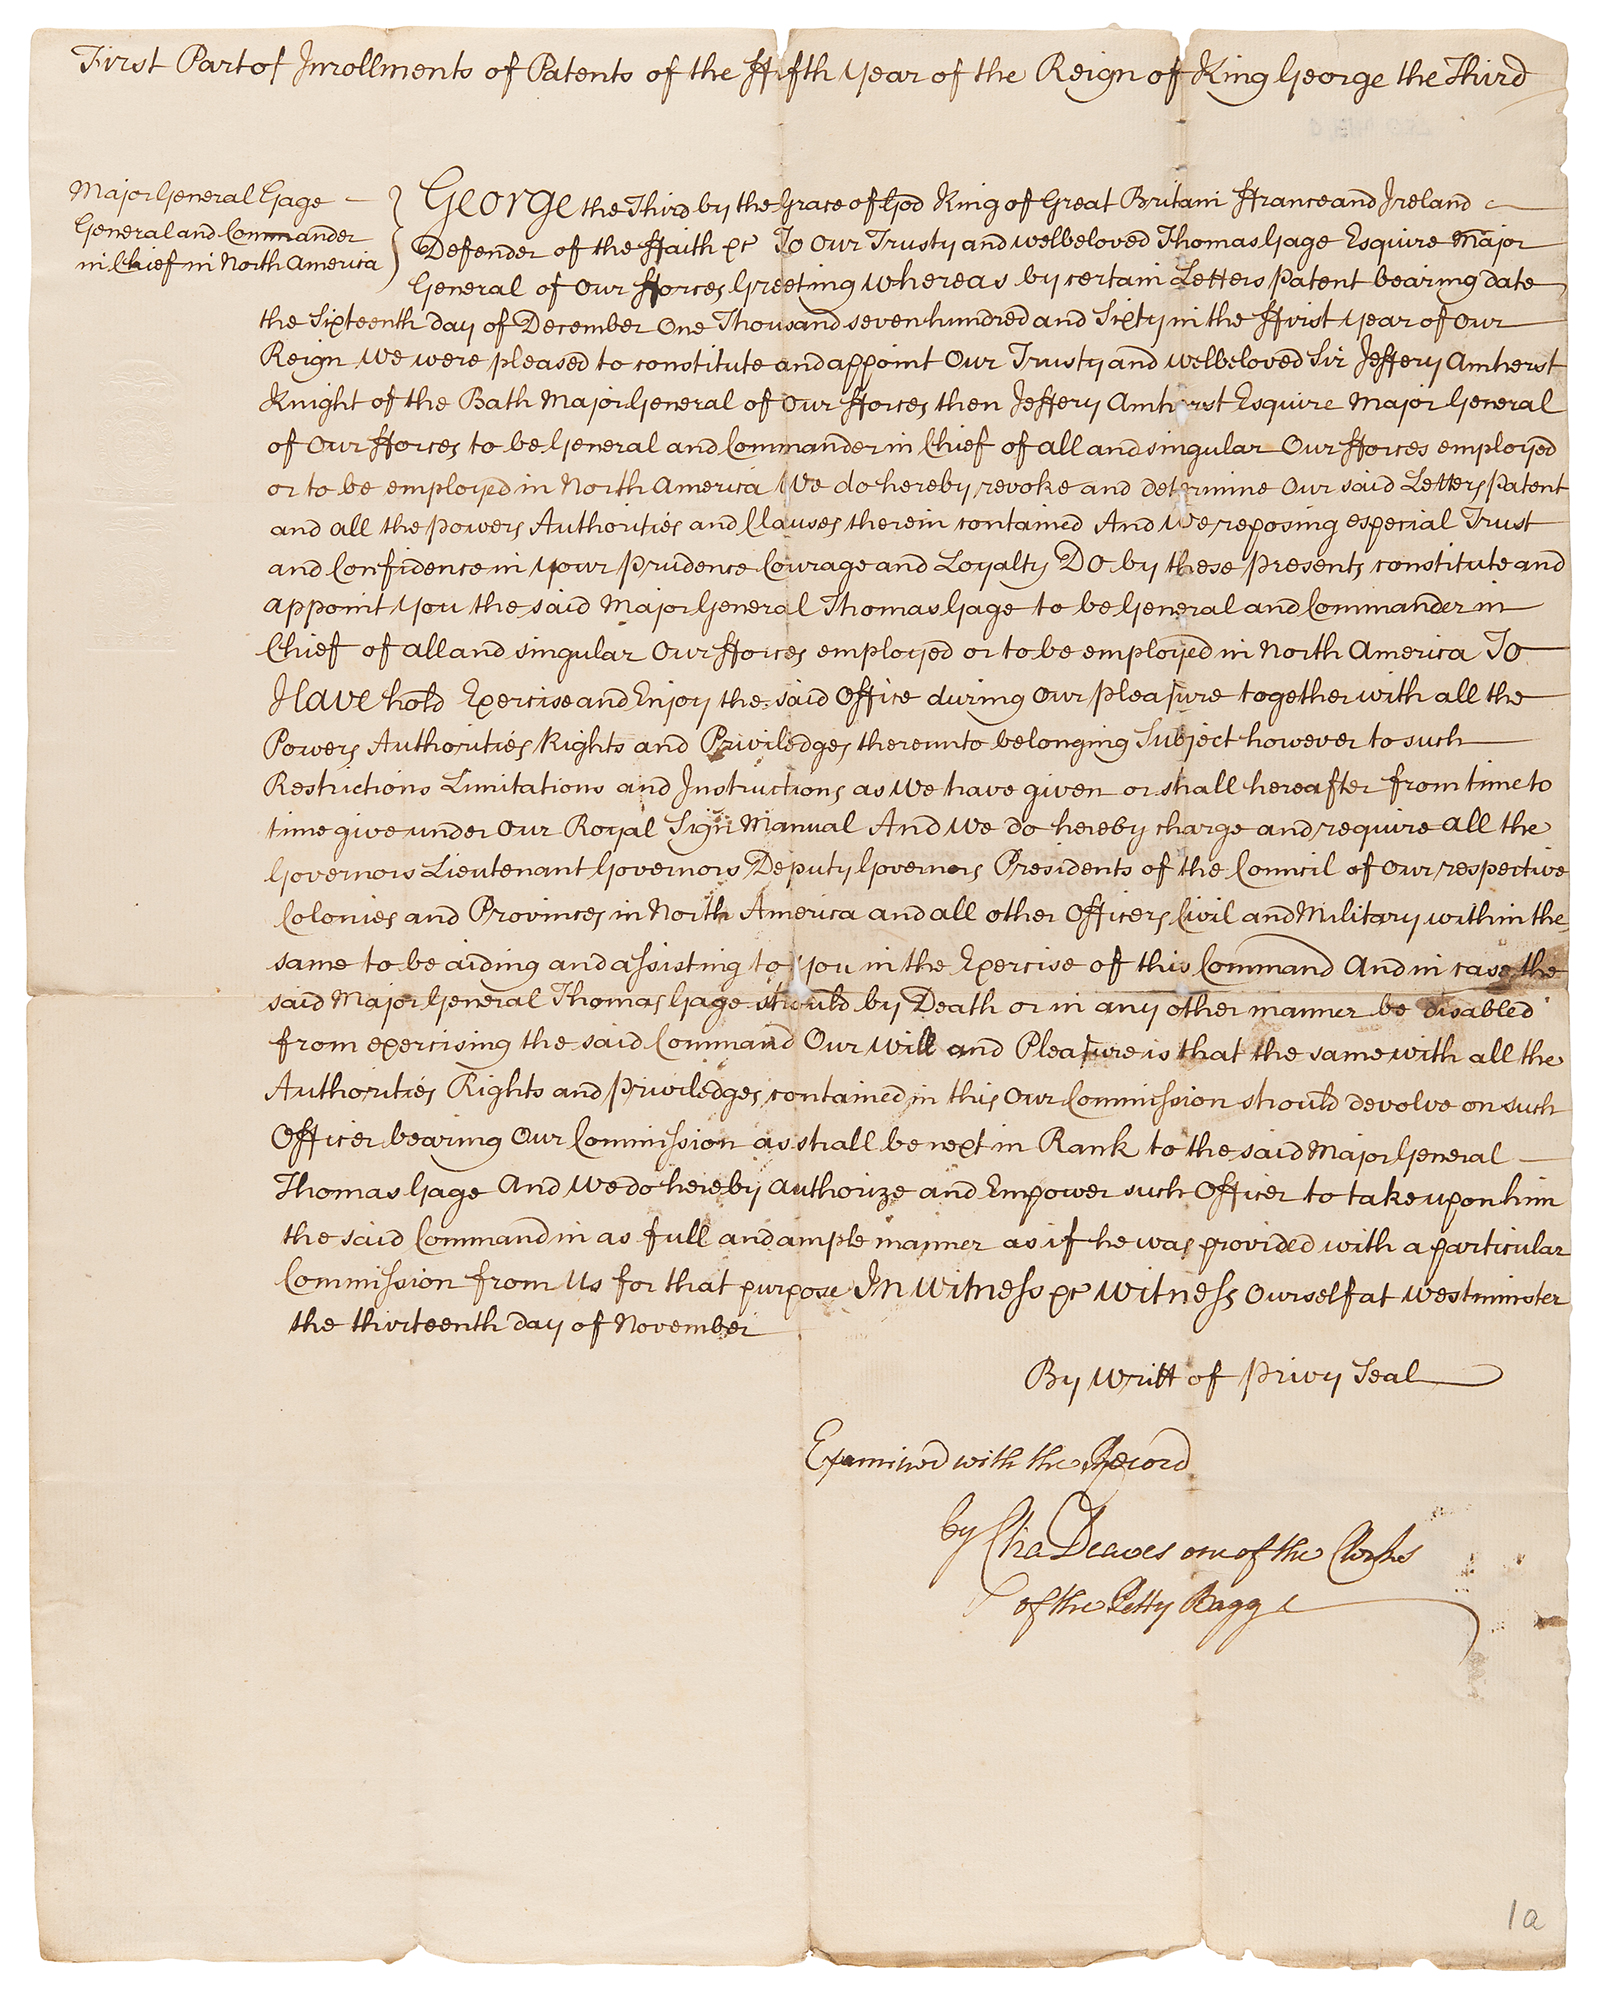 First Part of Inrollments of Patents of the Fifth Year of the Reign of King George the Third
Major General Gage
General and Commander
in Chief in North America
George the Third by the Grace of God King of Great Britain France and Ireland
Defender of the Faith &c To Our Trusty and welbeloved Thomas Gage Esquire Major
General of Our Forces Greeting Whereas by certain Letters Patent bearing date
the Sixteenth day of December One Thousand seven hundred and Sixty in the First Year of Our
Reign We were pleased to constitute and appoint Our Trusty and welbeloved Sir Jeffery Amherst
Knight of the Bath Major General of Our Forces then Jeffery Amherst Esquire Major General
of Our Forces to be General and Commander in Chief of all and singular Our Forces employed
or to be employed in North America We do hereby revoke and determine Our said Letters Patent
and all the powers Authorities and Clauses therein contained And We reposing especial Trust
and Confidence in your Prudence Courage and Loyalty Do by these presents constitute and
appoint You the said Major General Thomas Gage to be General and Commander in
Chief of all and singular Our Forces employed or to be employed in North America To
Have hold Exercise and Enjoy the said Office during Our pleasure together with all the
Powers Authorities Rights and Priviledges thereunto belonging Subject however to such
Restrictions Limitations and Instructions as We have given or shall hereafter from time to
time give under Our Royal Sign Manual And We do hereby charge and require all the
Governors Lieutenant Governors Deputy Governors Presidents of the Council of Our respective
Colonies and Provinces in North America and all other Officers Civil and Military within the
same to be aiding and assisting to You in the Exercise of this Command And in case the
said Major General Thomas Gage should by Death or in any other manner be disabled
from exercising the said Command Our Will and Pleasure is that the same with all the
Authorities Rights and Priviledges contained in this Our Commission should devolve on such
Officer bearing Our Commission as shall be next in Rank to the said Major General
Thomas Gage And We do hereby authorize and Empower such Officer to take upon him
the said Command in as full and ample manner as if he was provided with a particular
Commission from Us for that purpose In Witness &c Witness Ourself at Westminster
the thirteenth day of November
By Writt of Privy Seal
Examined with the Record
by Cha Deaves one of the Clerks
of the Petty Bagg
1a